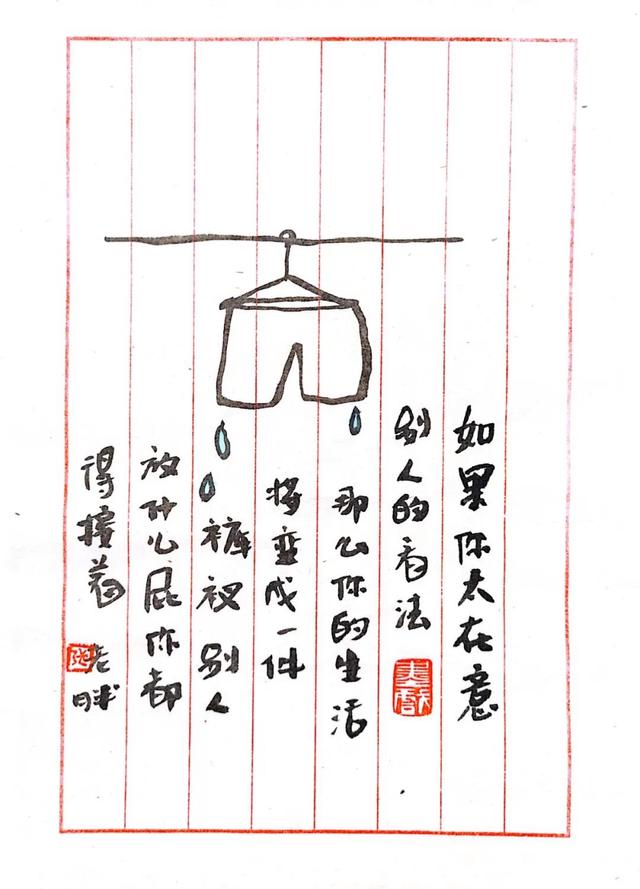 如果你太在意
别人的看法
那么你的生活
将变成一件
裤衩别人
放什么屁你都
得接着